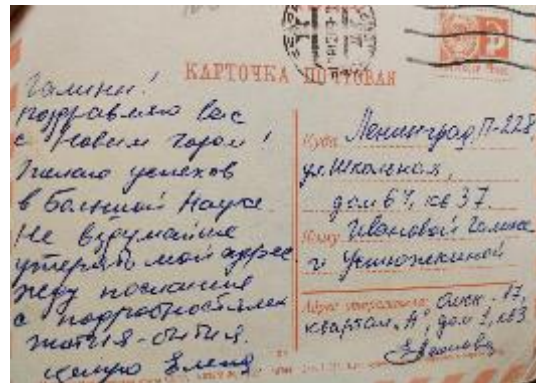 КАРТОЧКА ПОЧТОВАЯ
Галины!
поздравляю вас
с Новым годом!
Желаю успехов
в Большой Науке
Не вздумайте
утерять мой адрес
жду послания
с подробностями
жития-бытия.
целую Елена.
Куда Ленинград, П-228,
ул. Школьная,
дом 64, кв 37.
Кому Ивановой Галине
и Устюжкиной
Адрес отправителя: Омск-17,
квартал "А", дом 1, кв3.